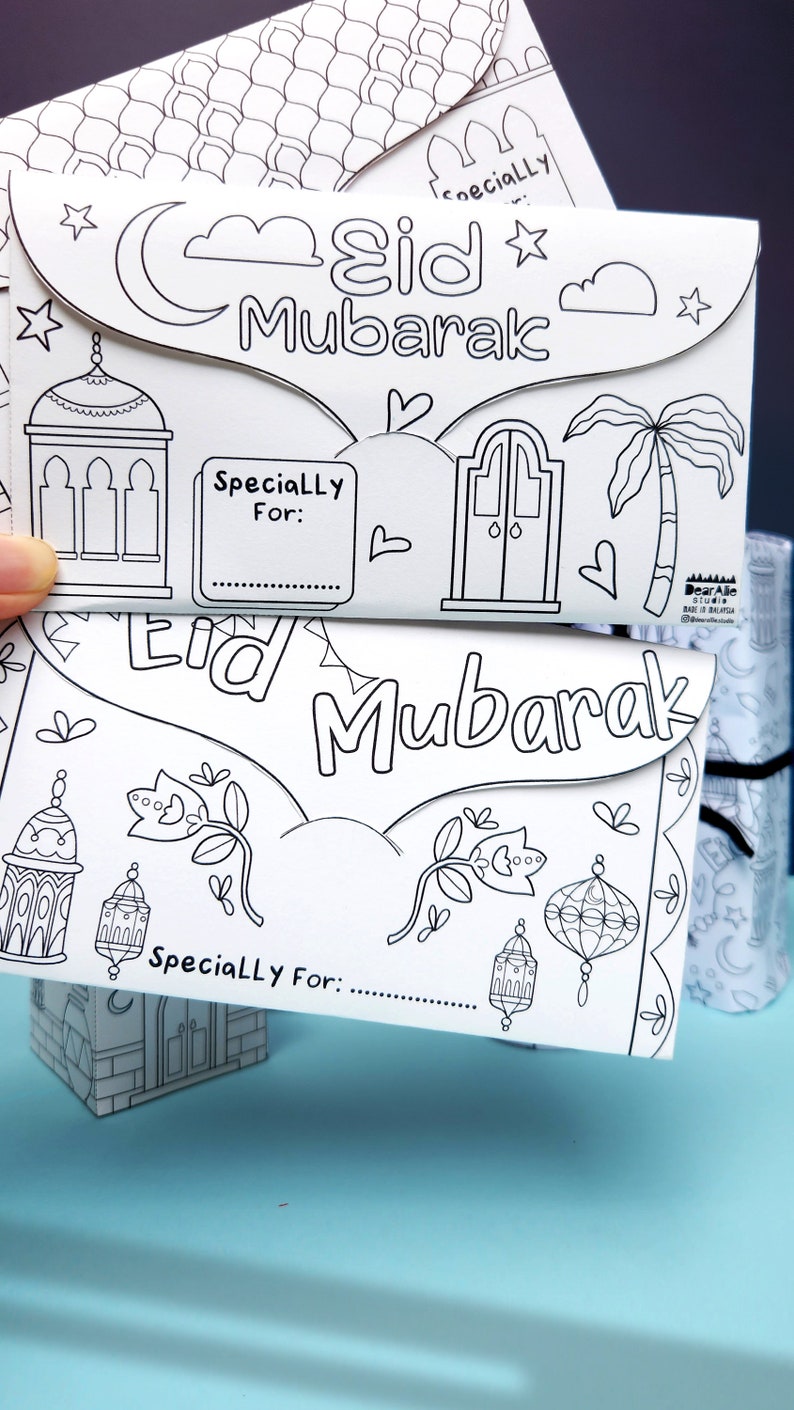 Specially
For:
Eid
Mubarak
Specially
For:
DearAllie
studio
MADE IN MALAYSIA
@dearallie.studio
Eid
Mubarak
Specially For: